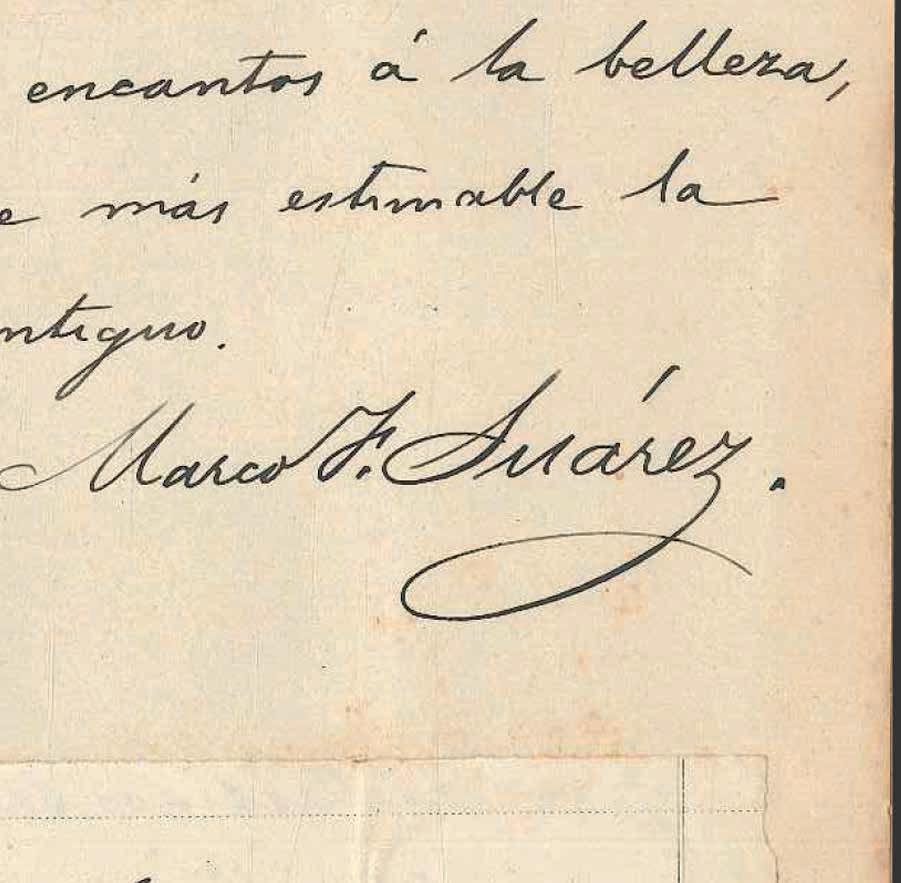 encantos á la belleza,
e más estimable la
ntiguo.
Marco F. Suárez.